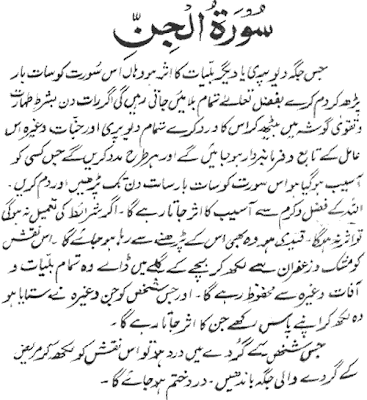 سُوْرَۃُ الْجِنِّ
جس جگہ دیو پری یا دیگر بلیات کا اثر ہو وہاں اس سورت کو سات بار
پڑھ کر دم کرے بفضل تعالےٰ تمام بلائیں جاتی رہیں گی اگر رات دن بشرط طہارت
و تقویٰ گوشہ میں بیٹھ کر اس کا ورد کرے تمام دیو پری اور جنات وغیرہ اس
عامل کے تابع و فرمانبردار ہو جائیں گے اور ہر طرح مدد کریں گے جس کسی کو
آسیب ہو گیا ہو اس سورت کو سات بار سات دن تک پڑھیں اور دم کریں ۔
اللہ کے فضل و کرم سے آسیب کا اثر جاتا رہے گا ۔ اگر شرائط کی تعمیل نہ ہوگی
تو اثر نہ ہوگا ۔ قیدی ہو وہ بھی اس کے پڑھنے سے رہا ہو جائے گا ۔ اس نقش
کو مشک و زعفران سے لکھ کر بچے کے گلے میں ڈالے وہ تمام بلیات و
آفات وغیرہ سے محفوظ رہے گا ۔ اور جس شخص کو جن وغیرہ نے ستایا ہو
وہ لکھ کر اپنے پاس رکھے جن کا اثر جاتا رہے گا ۔
جس شخص کے گردے میں درد ہو تو اس نقش کو لکھ کر مریض
کے گردے والی جگہ باندھیں ۔ درد ختم ہو جائے گا ۔